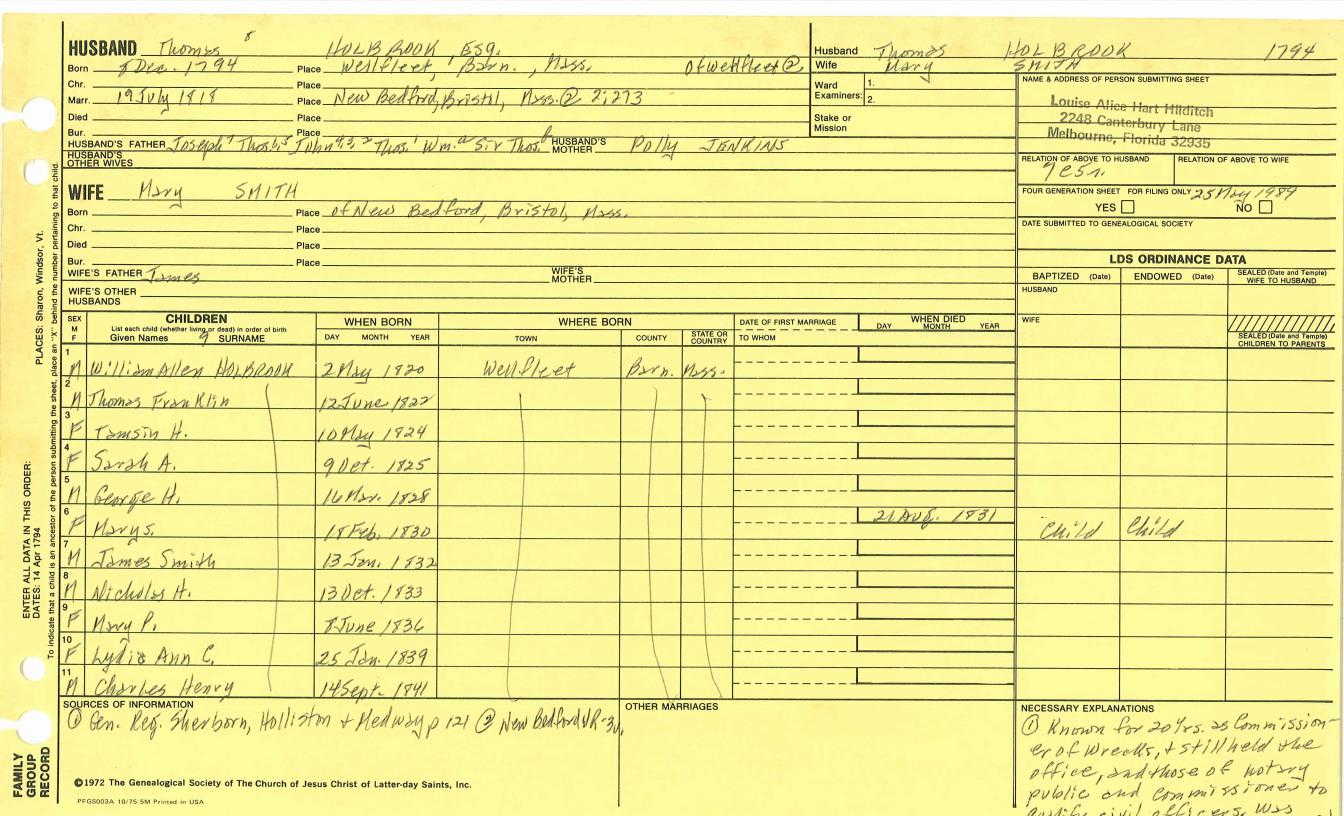 HUSBAND Thomas 8 HOLBROOK ESQ.
Born 8 Dec. 1794 Place Wellfleet, Barn., Mass. of Wellfleet @
Chr. Place
Marr. 19 July 1818 Place New Bedford, Bristol, Mass. @ 2;273
Died Place
Bur. Place
HUSBAND'S FATHER Joseph Thos. John Thos. Wm. Sir Thos. HUSBAND'S MOTHER Polly JENKINS
HUSBAND'S OTHER WIVES
WIFE Mary SMITH
Born Place of New Bedford, Bristol, Mass.
Chr. Place
Died Place
Bur. Place
WIFE'S FATHER James WIFE'S MOTHER
WIFE'S OTHER HUSBANDS
Husband Thomas HOLBROOK 1794
Wife Mary SMITH
Ward Examiners: 1.
2.
Stake or Mission
NAME & ADDRESS OF PERSON SUBMITTING SHEET
Louise Alice Hart Hilditch
2248 Canterbury Lane
Melbourne, Florida 32935
RELATION OF ABOVE TO HUSBAND RELATION OF ABOVE TO WIFE
FOUR GENERATION SHEET FOR FILING ONLY 25 May 1989
YES NO
DATE SUBMITTED TO GENEALOGICAL SOCIETY
LDS ORDINANCE DATA
BAPTIZED (Date) ENDOWED (Date) SEALED (Date and Temple) WIFE TO HUSBAND
HUSBAND
WIFE
SEALED (Date and Temple) CHILDREN TO PARENTS
SEX M F
CHILDREN
List each child (whether living or dead) in order of birth
Given Names 9 SURNAME
WHEN BORN
DAY MONTH YEAR
WHERE BORN
TOWN COUNTY STATE OR COUNTRY
DATE OF FIRST MARRIAGE
TO WHOM
WHEN DIED
DAY MONTH YEAR
1 M William Allen HOLBROOK 2 May 1820 Wellfleet Barn. Mass.
2 M Thomas Franklin 12 June 1822
3 F Tamsin H. 10 May 1824
4 F Sarah A. 9 Oct. 1825
5 M George H. 16 Mar. 1828
6 F Mary S. 18 Feb. 1830 21 Aug. 1831 Child Child
7 M James Smith 13 Jan. 1832
8 M Nicholas H. 13 Oct. 1833
9 F Mary P. 8 June 1836
10 F Lydia Ann C. 25 Jan. 1839
11 M Charles Henry 14 Sept. 1841
SOURCES OF INFORMATION
① Gen. Reg. Sherborn, Holliston & Medway p 121 ② New Bedford VR-3v,
OTHER MARRIAGES
NECESSARY EXPLANATIONS
① Known for 20 Yrs. as Commission-
er of Wrecks, & still held the
office, and those of notary
public and commissioner to
qualify civil officers, was
©1972 The Genealogical Society of The Church of Jesus Christ of Latter-day Saints, Inc.
PFGS003A 10/75 5M Printed in USA
FAMILY GROUP RECORD
ENTER ALL DATA IN THIS ORDER:
DATES: 14 Apr 1794
PLACES: Sharon, Windsor, Vt.
To indicate that a child is an ancestor of the person submitting the sheet, place an "X" behind the number pertaining to that child.